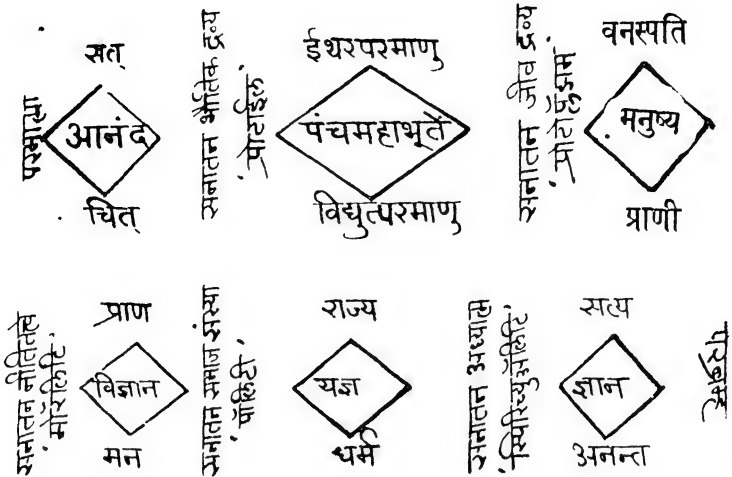 परमात्मा
सत्
आनंद
चित्
सनातन भौतिक द्रव्य
प्रोटाईल
ईथरपरमाणु
पंचमहाभूतें
विद्युत्परमाणु
सनातन जीव द्रव्य
प्रोटोप्लॅझम
वनस्पति
मनुष्य
प्राणी
सनातन नीतितत्वे
मोरॅलिटि
प्राण
विज्ञान
मन
सनातन समाज संस्था
पॉलिटी
राज्य
यज्ञ
धर्म
सनातन अध्यात्म
स्पिरिच्युॲलिटि
सत्य
ज्ञान
अनन्त
परब्रह्म